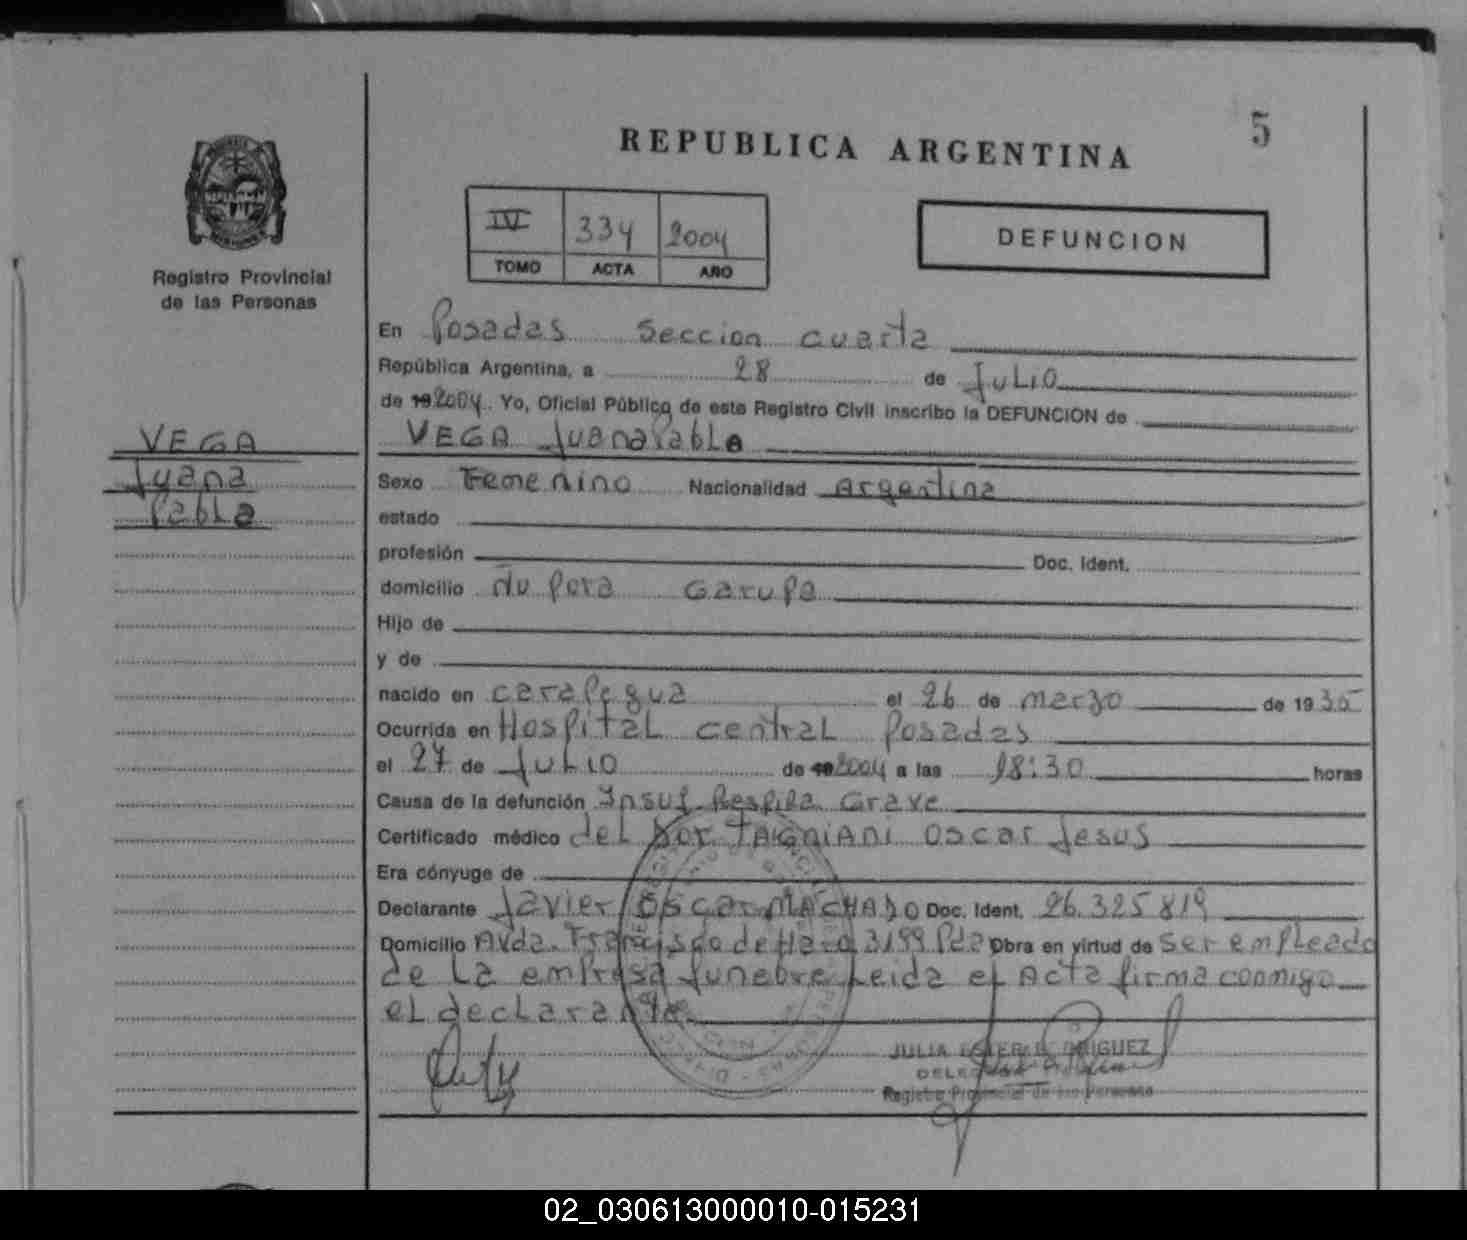 5
REPUBLICA ARGENTINA
Registro Provincial
de las Personas
IV 334 2004
TOMO ACTA AÑO
DEFUNCION
En Posadas Seccion cuarta
República Argentina, a 28 de Julio
de 19 2004. Yo, Oficial Público de este Registro Civil inscribo la DEFUNCION de
VEGA Juana Pabla
VEGA
Juana
Pabla
Sexo Femenino Nacionalidad Argentina
estado
profesión Doc. Ident.
domicilio Ñu Pora Garupa
Hijo de
y de
nacido en carapegua el 26 de marzo de 19 35
Ocurrida en Hospital central Posadas
el 27 de Julio de 19 2004 a las 18:30 horas
Causa de la defunción Insuf. Respira. Grave
Certificado médico del Dor TAIGNIANI Oscar Jesus
Era cónyuge de
Declarante Javier Oscar MACHADO Doc. Ident. 26.325819
Domicilio Avda. Francisco de Haro 3199 Pdas Obra en virtud de ser empleado
de La empresa funebre Leida el Acta firma conmigo
el declarante
JULIA ESTER RODRIGUEZ
DELEGADA
Registro Provincial de las Personas
02_030613000010-015231